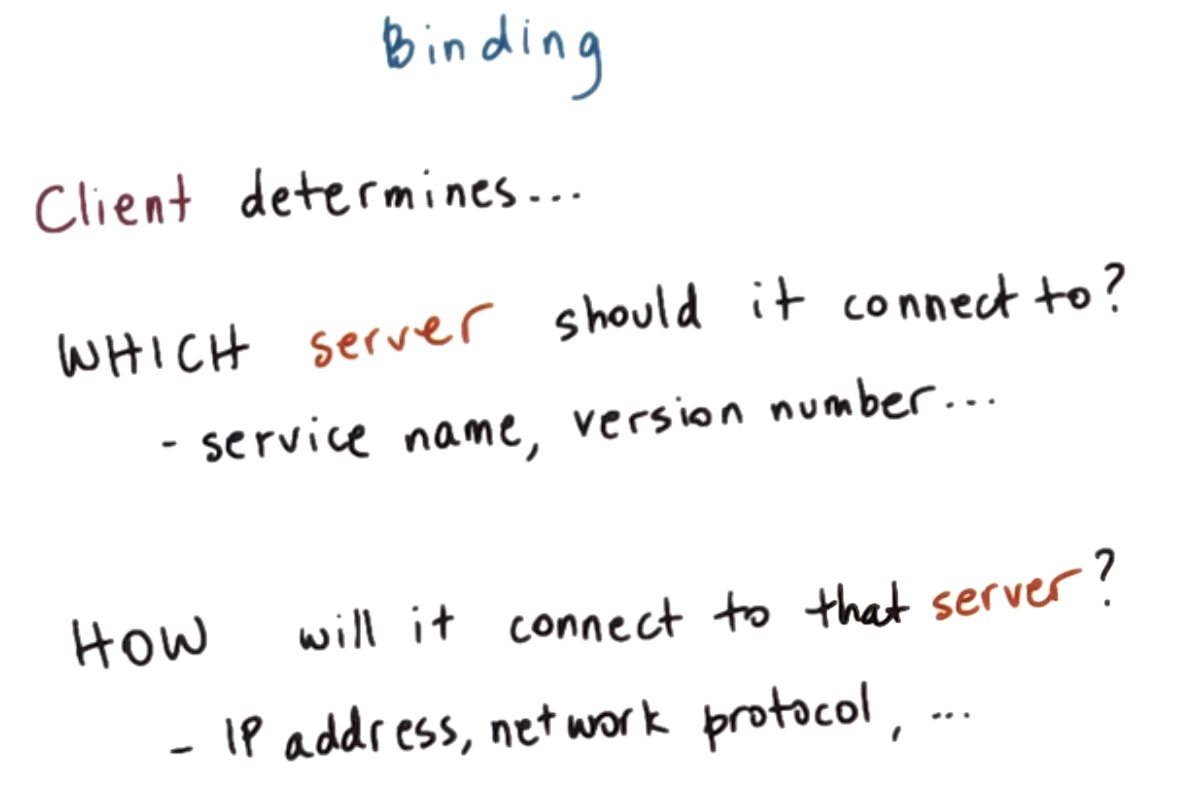 Binding
Client determines...
WHICH server should it connect to?
- service name, version number...
HOW will it connect to that server?
- IP address, network protocol, ...